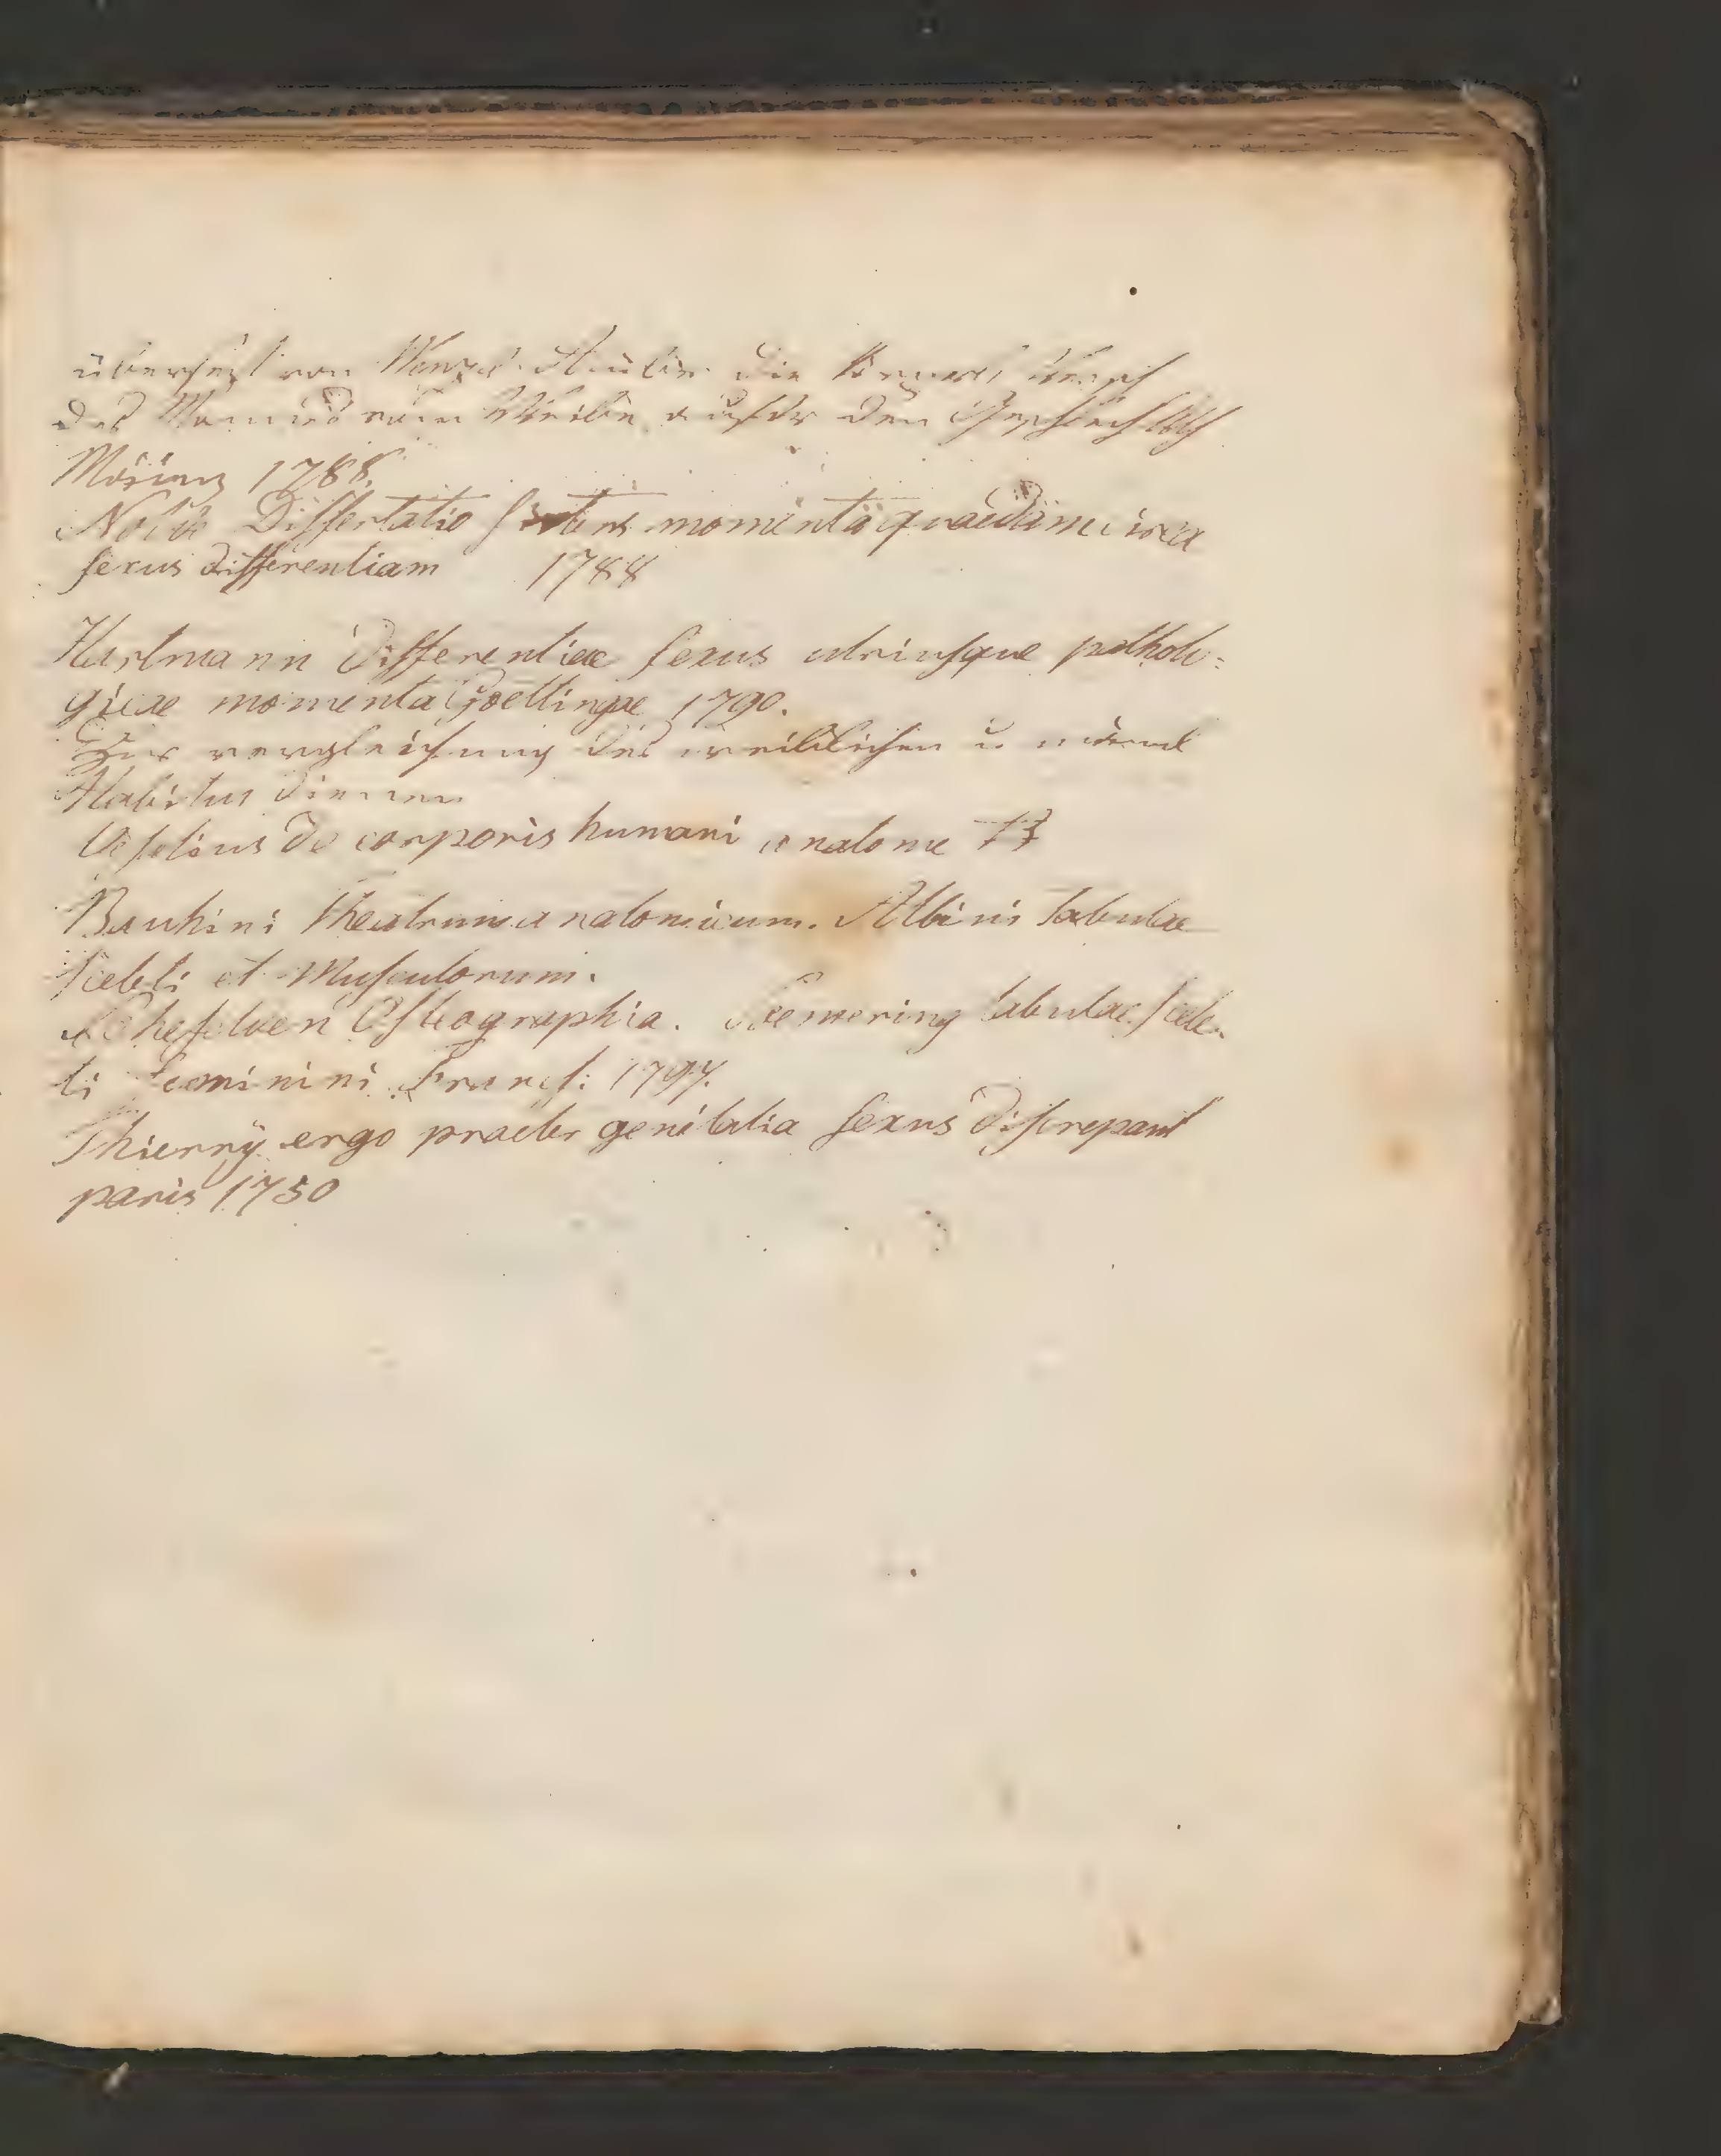 übersezt von Wenzel. Ueber die körperl. Versch
des Mannes vom Weibe außer den Geschlechtsth
Mainz 1788.
Dissertatio sistens momenta quaedam circa
sexus differentiam 1788
Hartmann Differentiae sexus utriusque patholo=
gicae momenta Goettingae 1790.
Zur vergleichung des weiblichen u. männl
Habitus dienen
Vesalius de corporis humani anatome
Bauhini Theatrum anatomicum. Albini tabulae
sceleti et Musculorum.
Chefelden Osteographia. Soemering tabulae scele-
ti feminini Francf: 1797.
Thierrÿ ergo praeter genitalia sexus discrepant
paris 1750